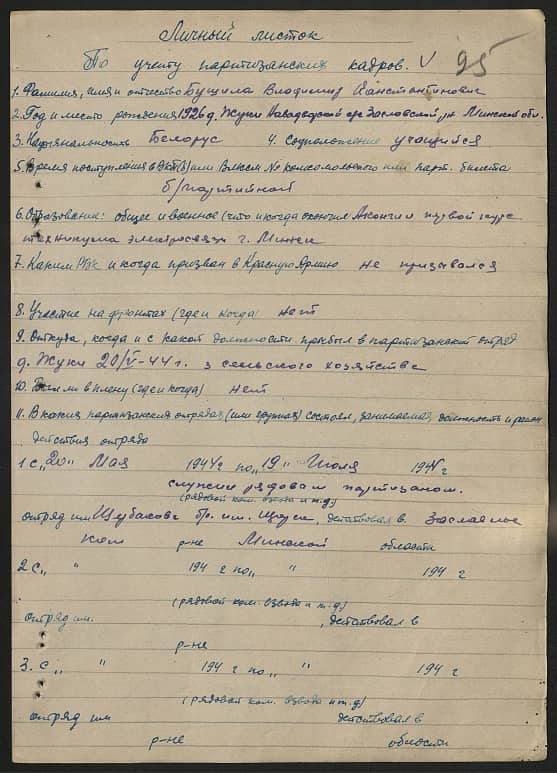 Личный листок
По учету партизанских кадров. V 95
1. Фамилия, имя и отчество Бущила Владимир Канстантинович
2. Год и место рождения 1926 д. Жуки Заславский р-н. Минской обл.
3. Национальность Белорус 4. Соцположение учащийся
5. Время поступления в ВКП(б) или ВЛКСМ № комсомольского или парт. билета
б/партийной
6. Образование: общее и военное (что и когда окончил Акончил первой курс
техникума электросвязи г. Минск
7. Каким РВК и когда призван в Красную Армию не призывался
8. Участие на фронтах (где и когда) нет
9. Откуда, когда и с какой должности прибыл в партизанский отряд
д. Жуки 20/V-44 г. з сельского хозяйства
10. Был ли в плену (где и когда) нет
11. В каких партизанских отрядах (или группах) состоял, занимаемая должность и район
действия отряда
1 с „20" Мая 1944 г по „19" Июля 1944 г
служил рядовым партизаном.
(рядовой ком. взвода и т.д.)
отряд им Щубакова бр. им. Щорса, действовал в Заславльс
ком р-не Минской области
2 с „ " 194 г по „ " 194 г
(рядовой ком. взвода и т.д.)
отряд им. , действовал в
р-не
3. с „ " 194 г по „ " 194 г
(рядовой ком. взвода и т.д.)
отряд им действовал в
р-не области